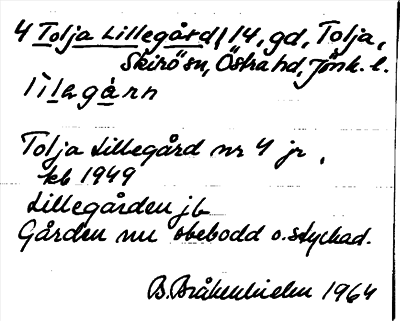 4 Tolja Lillegård, 14, gd, Tolja,
Skirö sn, Östra hd, Jönk. l.
lilegárn
Tolja Lillegård nr 4 jr,
kb 1949
Lillegården jb
Gården nu obebodd o. styckad.
B. Bråkenhielm 1964